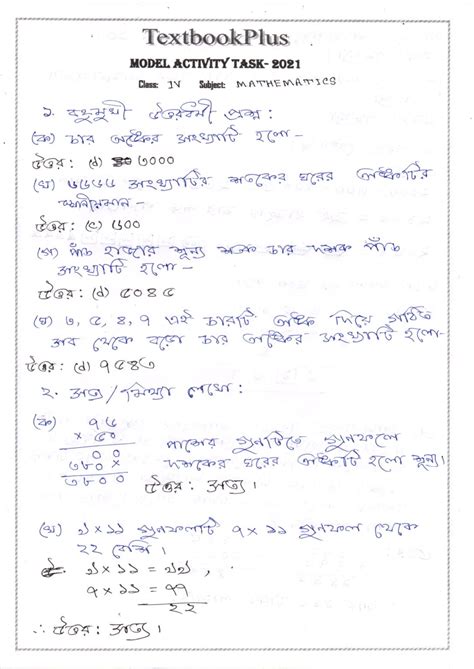 TextbookPlus
MODEL ACTIVITY TASK- 2021
Class: IV Subject: MATHEMATICS
১. বহুমুখী উত্তরধর্মী প্রশ্ন :
(ক) চার অঙ্কের সংখ্যাটি হলো –
উত্তর : (d) ৩০০০
(খ) ৬৫৫৫ সংখ্যাটির শতকের ঘরের অঙ্কটির
স্থানীয়মান –
উত্তর : (c) ৫০০
(গ) পাঁচ হাজার শূন্য শতক চার দশক পাঁচ
সংখ্যাটি হলো –
উত্তর : (d) ৫০৪৫
(ঘ) ৩, ৫, ৪, ৭ এই চারটি অঙ্ক দিয়ে গঠিত
সব থেকে বড়ো চার অঙ্কের সংখ্যাটি হলো-
উত্তর : (d) ৭৫৪৩
২. সত্য / মিথ্যা লেখো :
(ক) ৭৬
× ৫০
০০
৩৮০×
৩৮০০
পাশের গুনটিতে গুনফলে
দশকের ঘরের অঙ্কটি হলো শূন্য।
উত্তর : সত্য।
(খ) ৯ × ১১ গুনফলটি ৭ × ১১ গুনফল থেকে
২২ বেশি।
৯ × ১১ = ৯৯,
৭ × ১১ = ৭৭
২২
∴ উত্তর : সত্য।